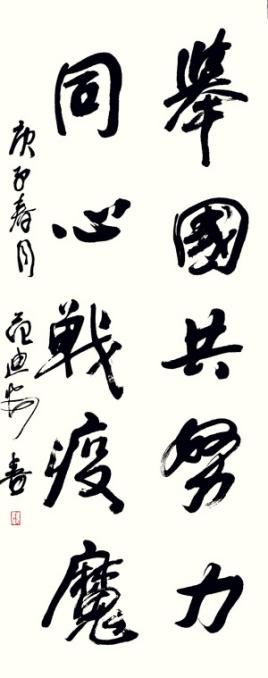 舉國共努力
同心戰疫魔
庚子春月
范迪安書